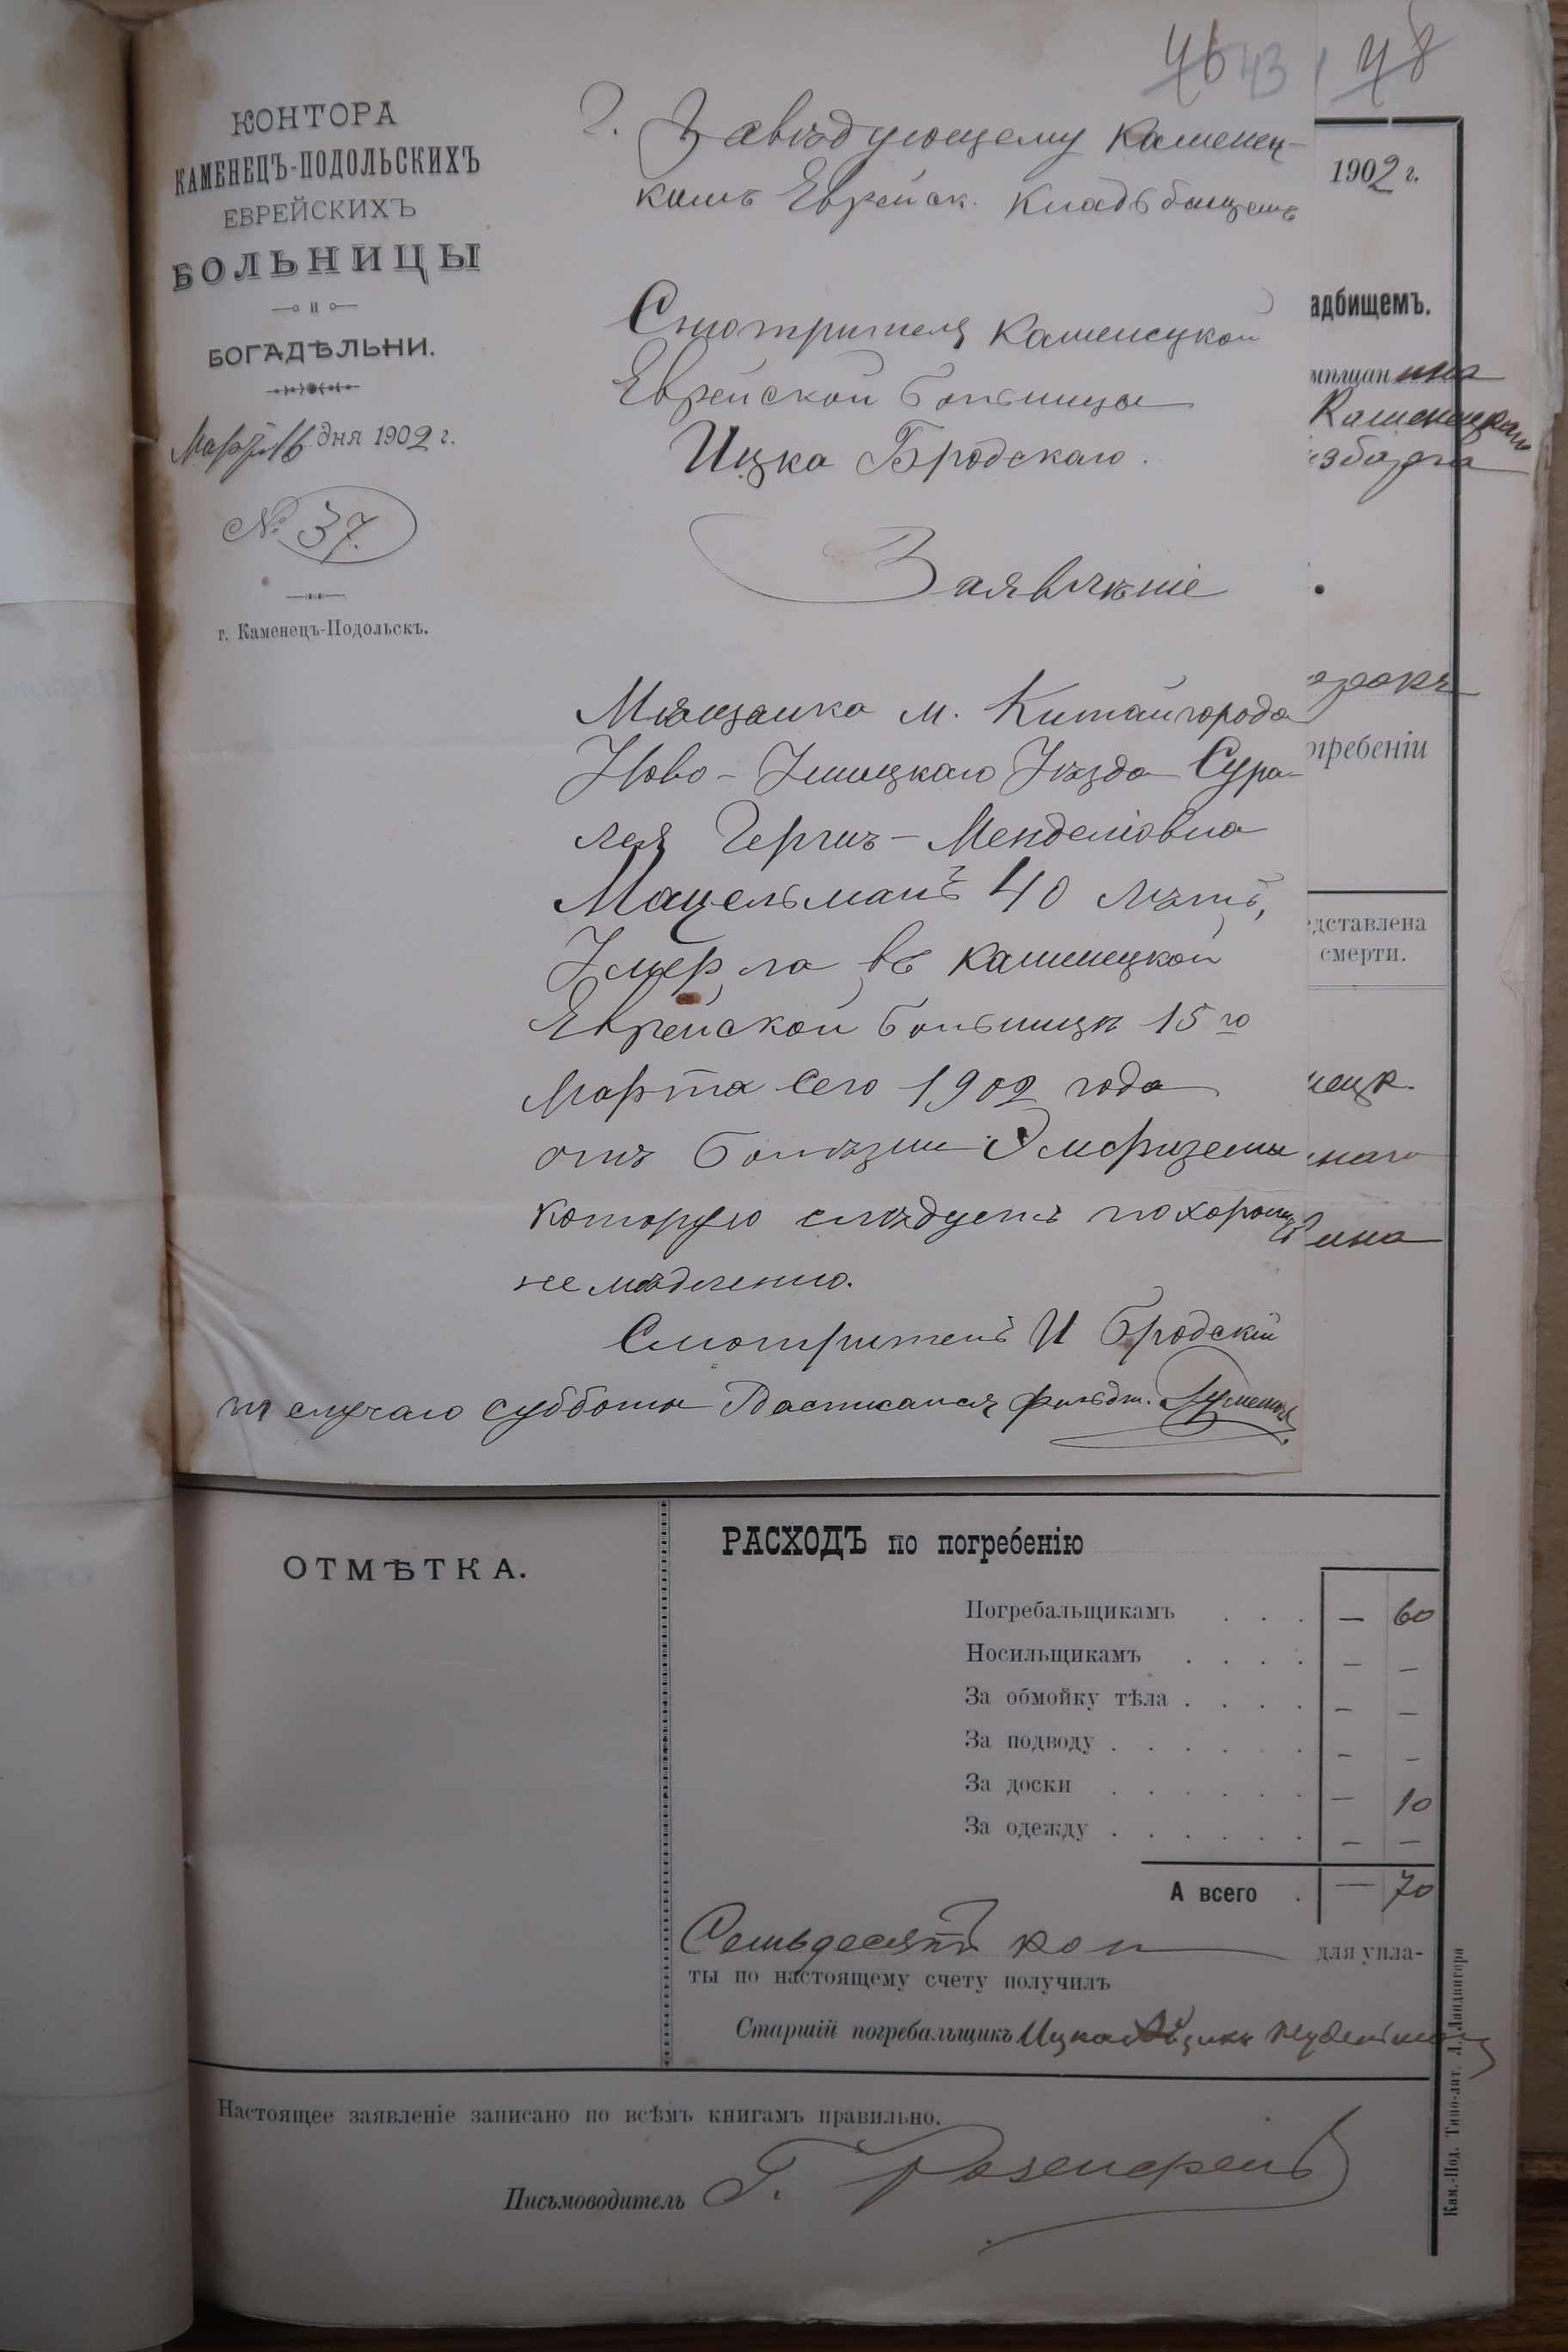 46 43 48
КОНТОРА
КАМЕНЕЦЪ-ПОДОЛЬСКИХЪ
ЕВРЕЙСКИХЪ
БОЛЬНИЦЫ
и
БОГАДѢЛЬНИ.
Марта 16 дня 1902 г.
№ 37.
г. Каменецъ-Подольскъ.
Г. Завѣдующему Каменец-
кимъ Еврейск. Кладбищемъ
Смотрителя Каменецкой
Еврейской больницы
Ицка Бродскаго.
Заявленіе
Мѣщанка м. Китайгорода
Ново-Ушицкаго Уѣзда Сура
Лея Гершъ-Менделіовна
Мацельманъ 40 лѣтъ,
Умерла въ Каменецкой
Еврейской больницѣ 15го
Марта сего 1902 года
отъ болѣзни Эмфиземы
которую слѣдуетъ похоронить
немѣдленно.
Смотритель И Бродскій
по случаю субботы Росписался фельдш.
1902 г.
адбищемъ.
мѣщан ина
Каменецкаго
огребеніи
едставлена
смерти.
нецк.
наго
ина
ОТМѢТКА.
РАСХОДЪ по погребенію
Погребальщикамъ . . . — 60
Носильщикамъ . . . . — —
За обмойку тѣла . . . . — —
За подводу . . . . . . — —
За доски . . . . . . — 10
За одежду . . . . . . — —
А всего . — 70
Семьдесятъ коп для упла-
ты по настоящему счету получилъ
Старшій погребальщикъ Ицко
Настоящее заявленіе записано по всѣмъ книгамъ правильно.
Письмоводитель Г.
Кам.-Под. Типо-лит. Л. Ландвигера